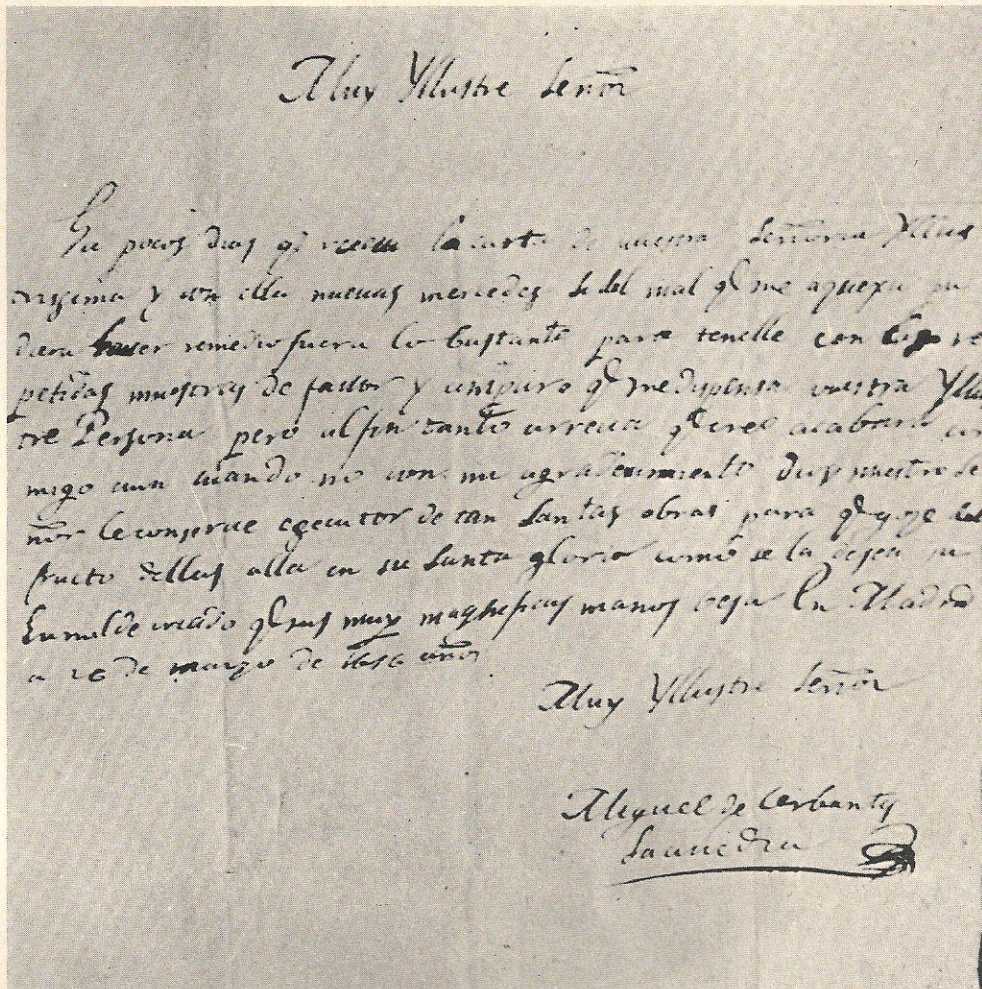 Muy Yllustre Señor
Ha pocos dias q̃ receui la carta de uuestra Señoria Yllus
trissima y con ella nueuas mercedes Si del mal q̃ me aquexa pu
diera hauer remedio fuera lo bastante para tenelle con las re
petidas muestras de fauor y amparo q̃ me dispensa vuestra Yllus
tre Persona pero al fin tanto arrecia q̃ creo acabara con
migo aun cuando no con mi agradecimiento Dios nuestro Se
ñor le conserue egecutor de tan Santas obras para q̃ goze del
fructo dellas alla en su Santa gloria como se la desea su
humilde criado q̃ sus muy magnificas manos besa En Madrid
a 26 de marzo de 1616 años
Muy Yllustre Señor
Miguel de Cerbantes
Saauedra